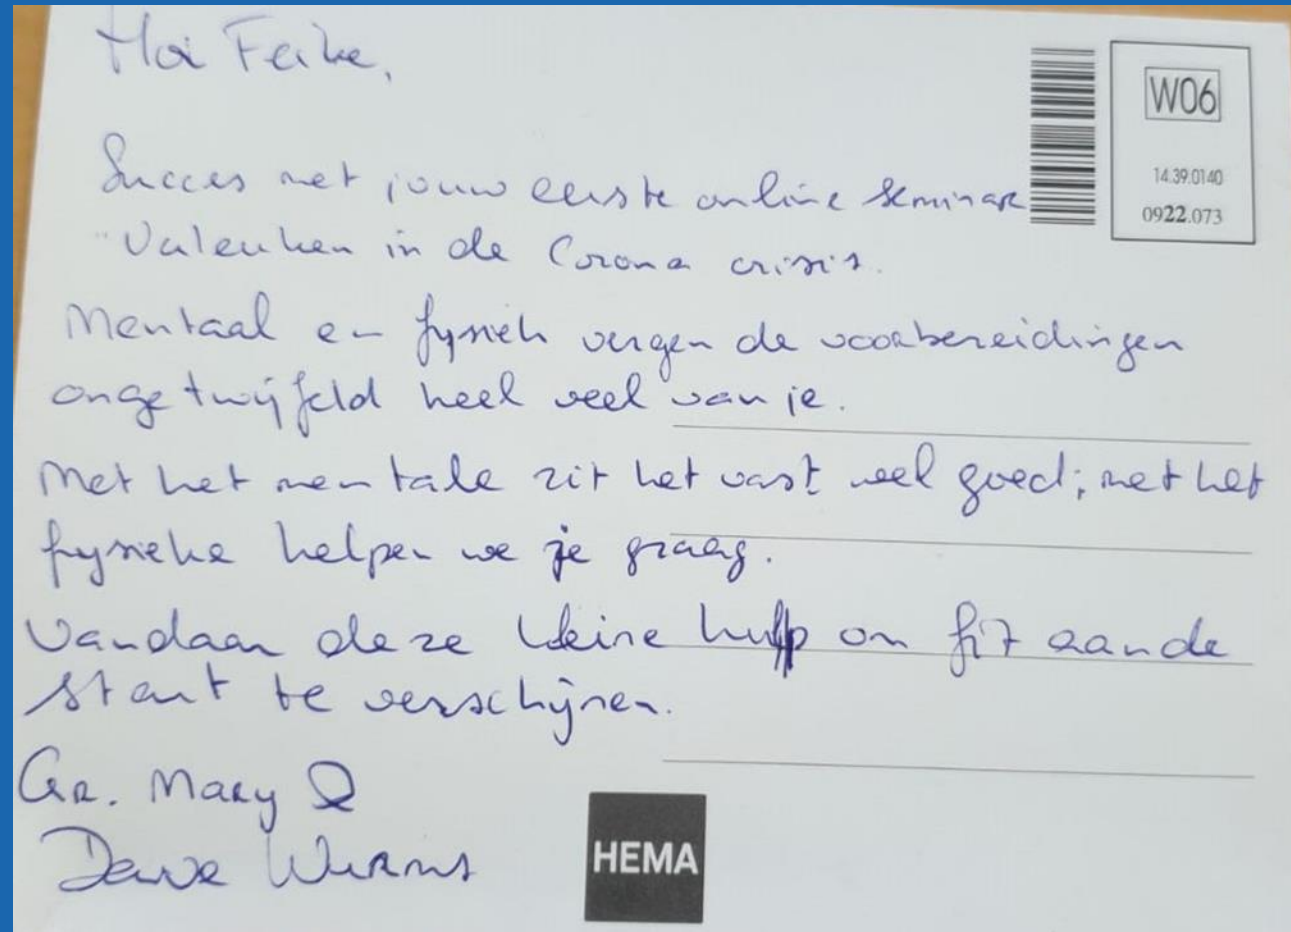 Hoi Feike,
W06
14.39.0140
0922.073
Succes met jouw eerste online seminar
"Valeuken in de Corona crisis.
Mentaal en fysiek vergen de voorbereidingen
ongetwijfeld heel veel van je.
Met het mentale zit het vast wel goed; met het
fysieke helpen we je graag.
Vandaar deze kleine hulp om fit aan de
start te verschijnen.
Gr. Mary &
Dewe Wurms
HEMA